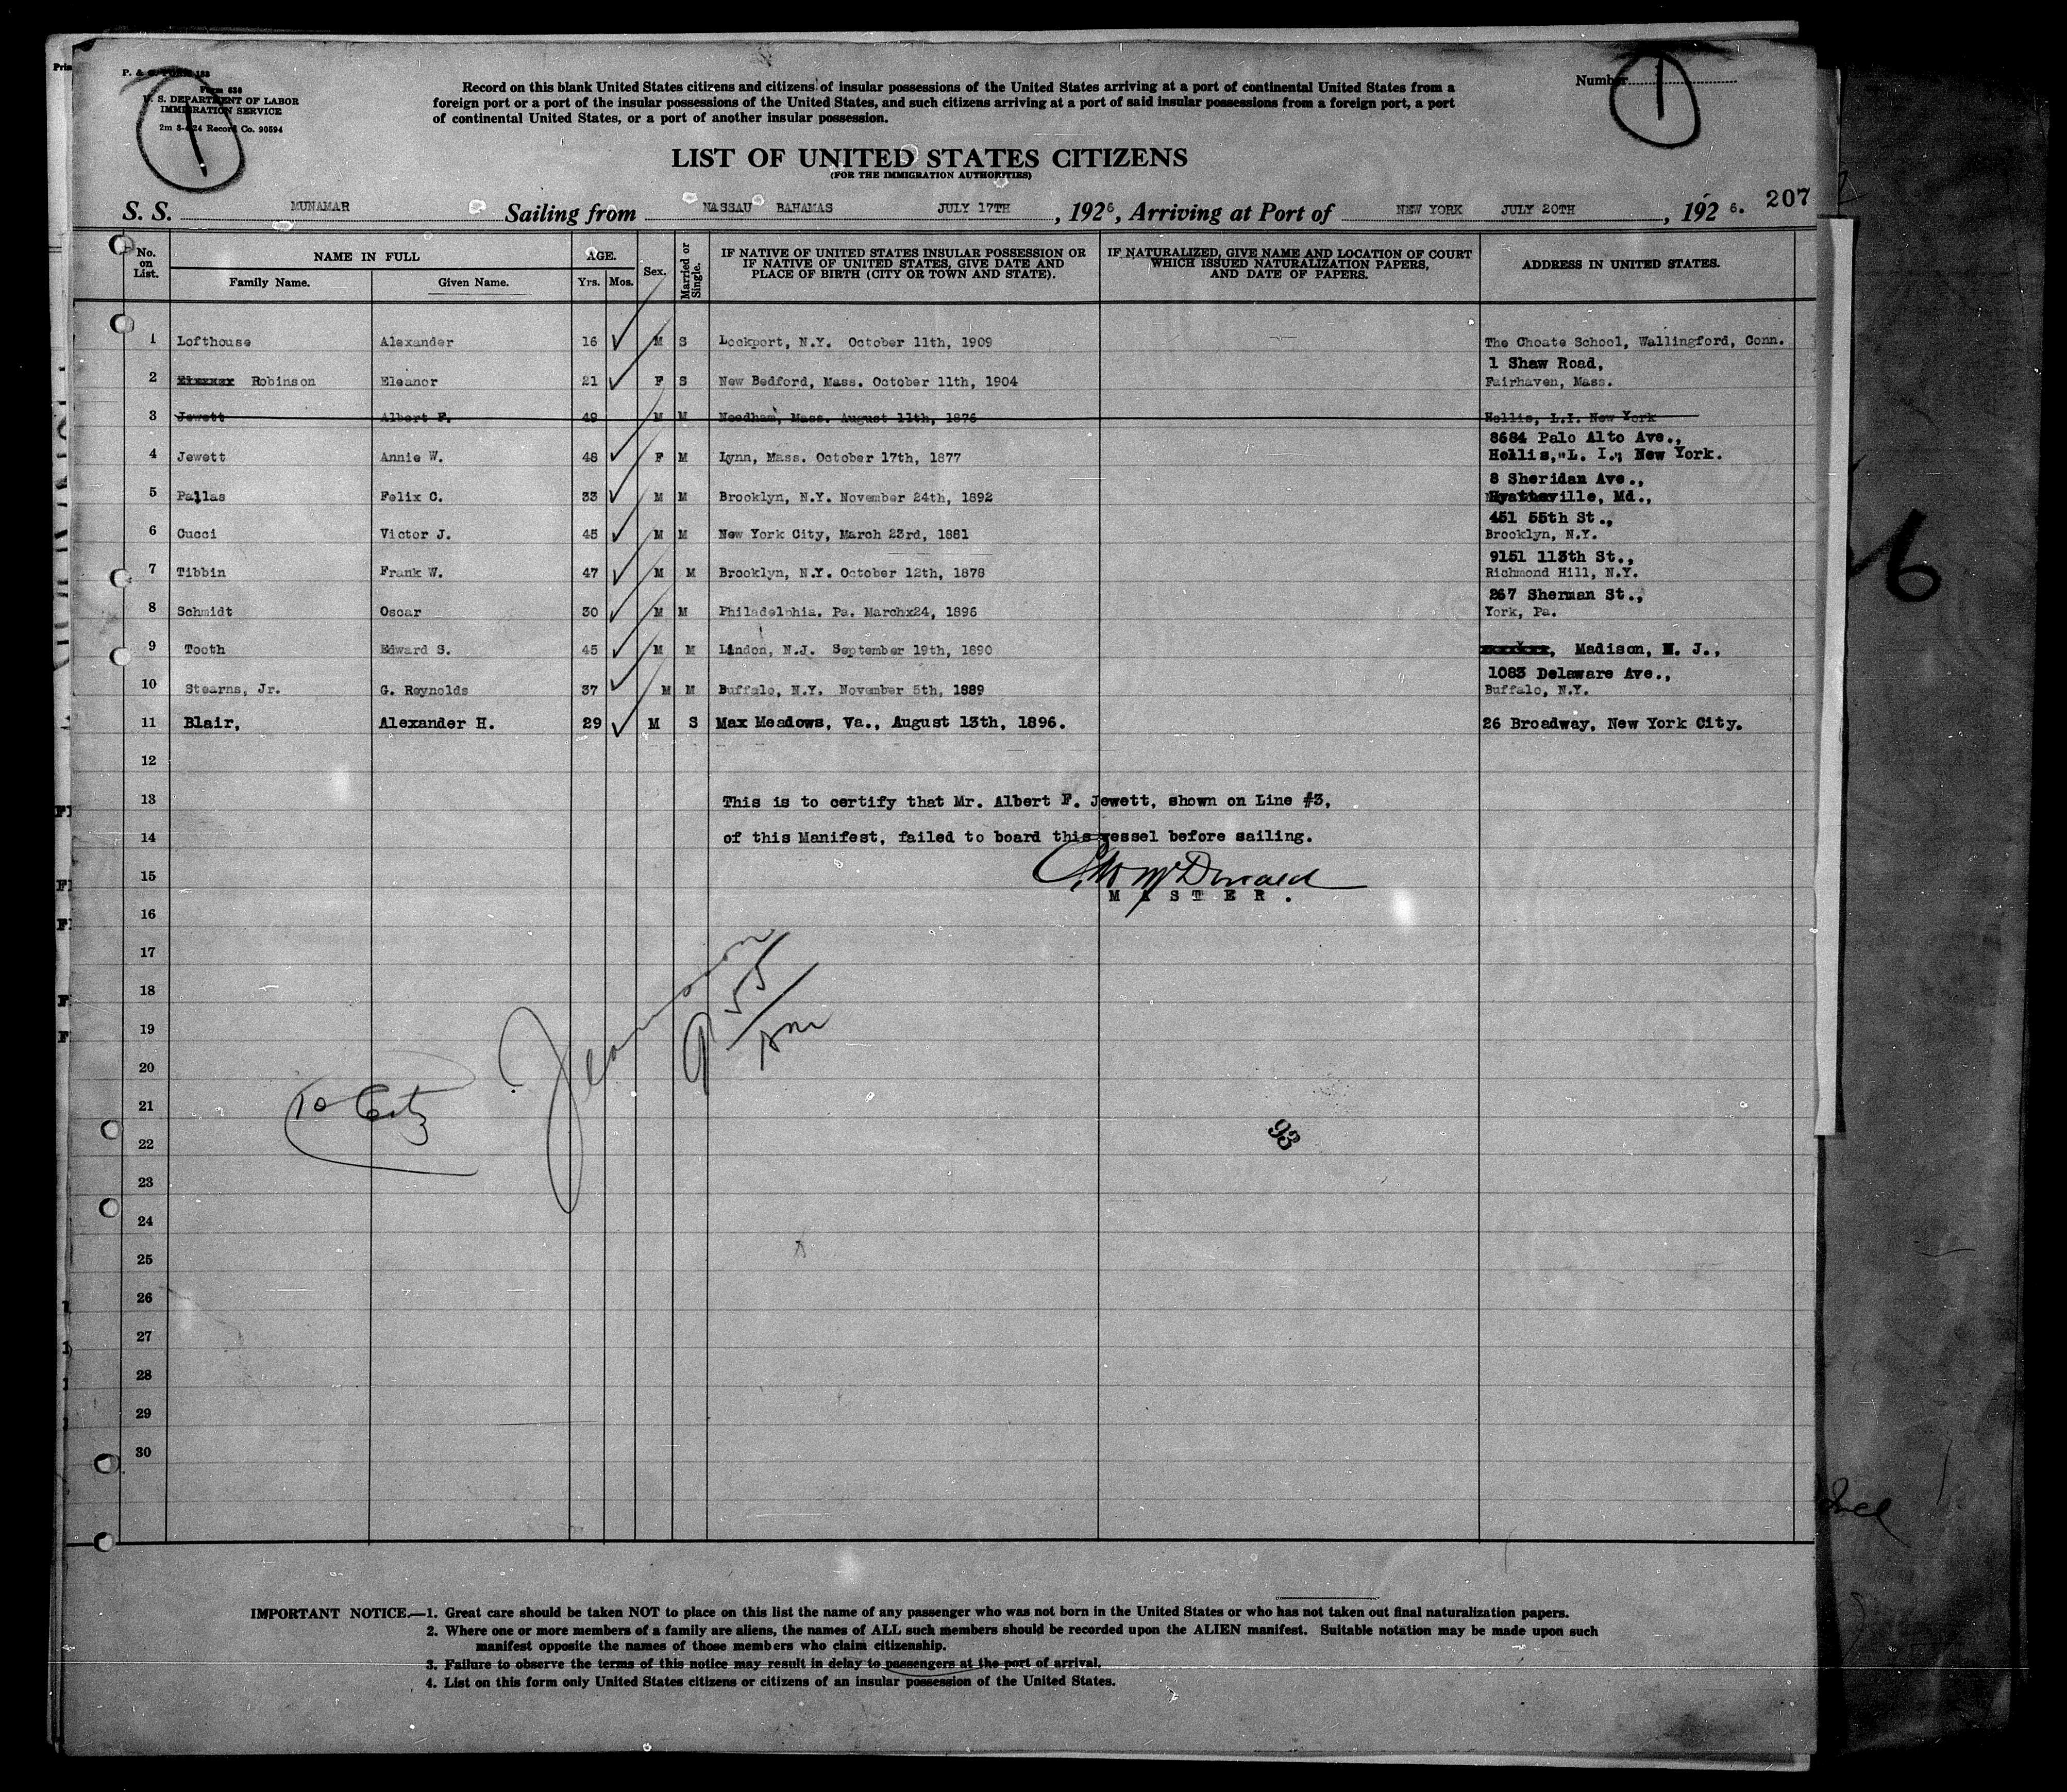 P. & FORM 183
Form 630
U. S. DEPARTMENT OF LABOR
IMMIGRATION SERVICE
2m 8-4-24 Record Co. 90594
1
Record on this blank United States citizens and citizens of insular possessions of the United States arriving at a port of continental United States from a
foreign port or a port of the insular possessions of the United States, and such citizens arriving at a port of said insular possessions from a foreign port, a port
of continental United States, or a port of another insular possession.
Number
1
LIST OF UNITED STATES CITIZENS
(FOR THE IMMIGRATION AUTHORITIES)
S. S. MUNAMAR Sailing from NASSAU BAHAMAS JULY 17TH, 1926, Arriving at Port of NEW YORK JULY 20TH, 1926. 207
No. on List. NAME IN FULL Family Name. Given Name. AGE. Yrs. Mos. Sex. Married or Single. IF NATIVE OF UNITED STATES INSULAR POSSESSION OR IF NATIVE OF UNITED STATES, GIVE DATE AND PLACE OF BIRTH (CITY OR TOWN AND STATE). IF NATURALIZED, GIVE NAME AND LOCATION OF COURT WHICH ISSUED NATURALIZATION PAPERS, AND DATE OF PAPERS. ADDRESS IN UNITED STATES.
1 Lofthouse Alexander 16 ✓ M S Lockport, N.Y. October 11th, 1909 The Choate School, Wallingford, Conn.
1 Shaw Road,
2 Robinson Eleanor 21 ✓ F S New Bedford, Mass. October 11th, 1904 Fairhaven, Mass.
3 Jewett Albert F. 49 M M Needham, Mass. August 11th, 1876 Hollis, L.I. New York
8684 Palo Alto Ave.,
4 Jewett Annie W. 48 ✓ F M Lynn, Mass. October 17th, 1877 Hollis, L. I., New York.
8 Sheridan Ave.,
5 Pallas Felix C. 33 ✓ M M Brooklyn, N.Y. November 24th, 1892 Hyattsville, Md.,
451 55th St.,
6 Cucci Victor J. 45 ✓ M M New York City, March 23rd, 1881 Brooklyn, N.Y.
9151 113th St.,
7 Tibbin Frank W. 47 ✓ M M Brooklyn, N.Y. October 12th, 1878 Richmond Hill, N.Y.
267 Sherman St.,
8 Schmidt Oscar 30 ✓ M M Philadelphia. Pa. Marchx24, 1896 York, Pa.
9 Tooth Edward S. 45 ✓ M M Lindon, N.J. September 19th, 1890 xxxxxxx, Madison, N. J.,
1083 Delaware Ave.,
10 Stearns, Jr. G. Reynolds 37 ✓ M M Buffalo, N.Y. November 5th, 1889 Buffalo, N.Y.
11 Blair, Alexander H. 29 ✓ M S Max Meadows, Va., August 13th, 1896. 26 Broadway, New York City.
12
13 This is to certify that Mr. Albert F. Jewett, shown on Line #3,
14 of this Manifest, failed to board this vessel before sailing.
15 McDonald
MASTER.
16
17
18
19
20
21
22
23
24
25
26
27
28
29
30
9 55
To City
93
IMPORTANT NOTICE.—1. Great care should be taken NOT to place on this list the name of any passenger who was not born in the United States or who has not taken out final naturalization papers.
2. Where one or more members of a family are aliens, the names of ALL such members should be recorded upon the ALIEN manifest. Suitable notation may be made upon such
manifest opposite the names of those members who claim citizenship.
3. Failure to observe the terms of this notice may result in delay to passengers at the port of arrival.
4. List on this form only United States citizens or citizens of an insular possession of the United States.